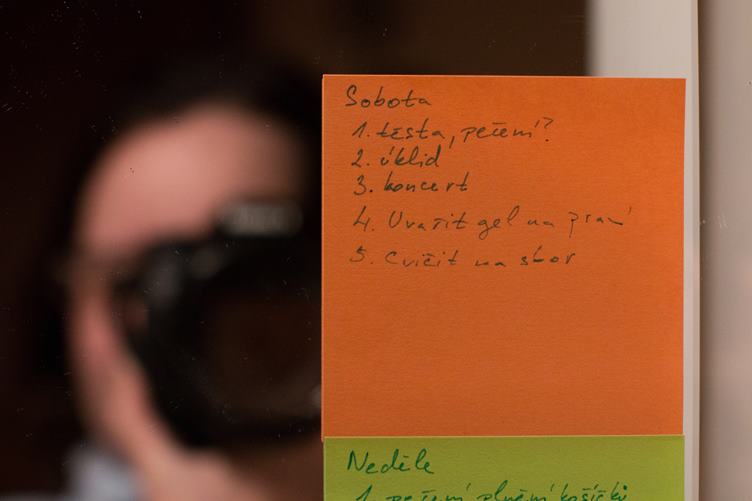 Sobota
1. těsta, pečení?
2. úklid
3. koncert
4. Uvařit gel na praní
5. Cvičit na sbor
Neděle
1. pečení, plnění košíčků